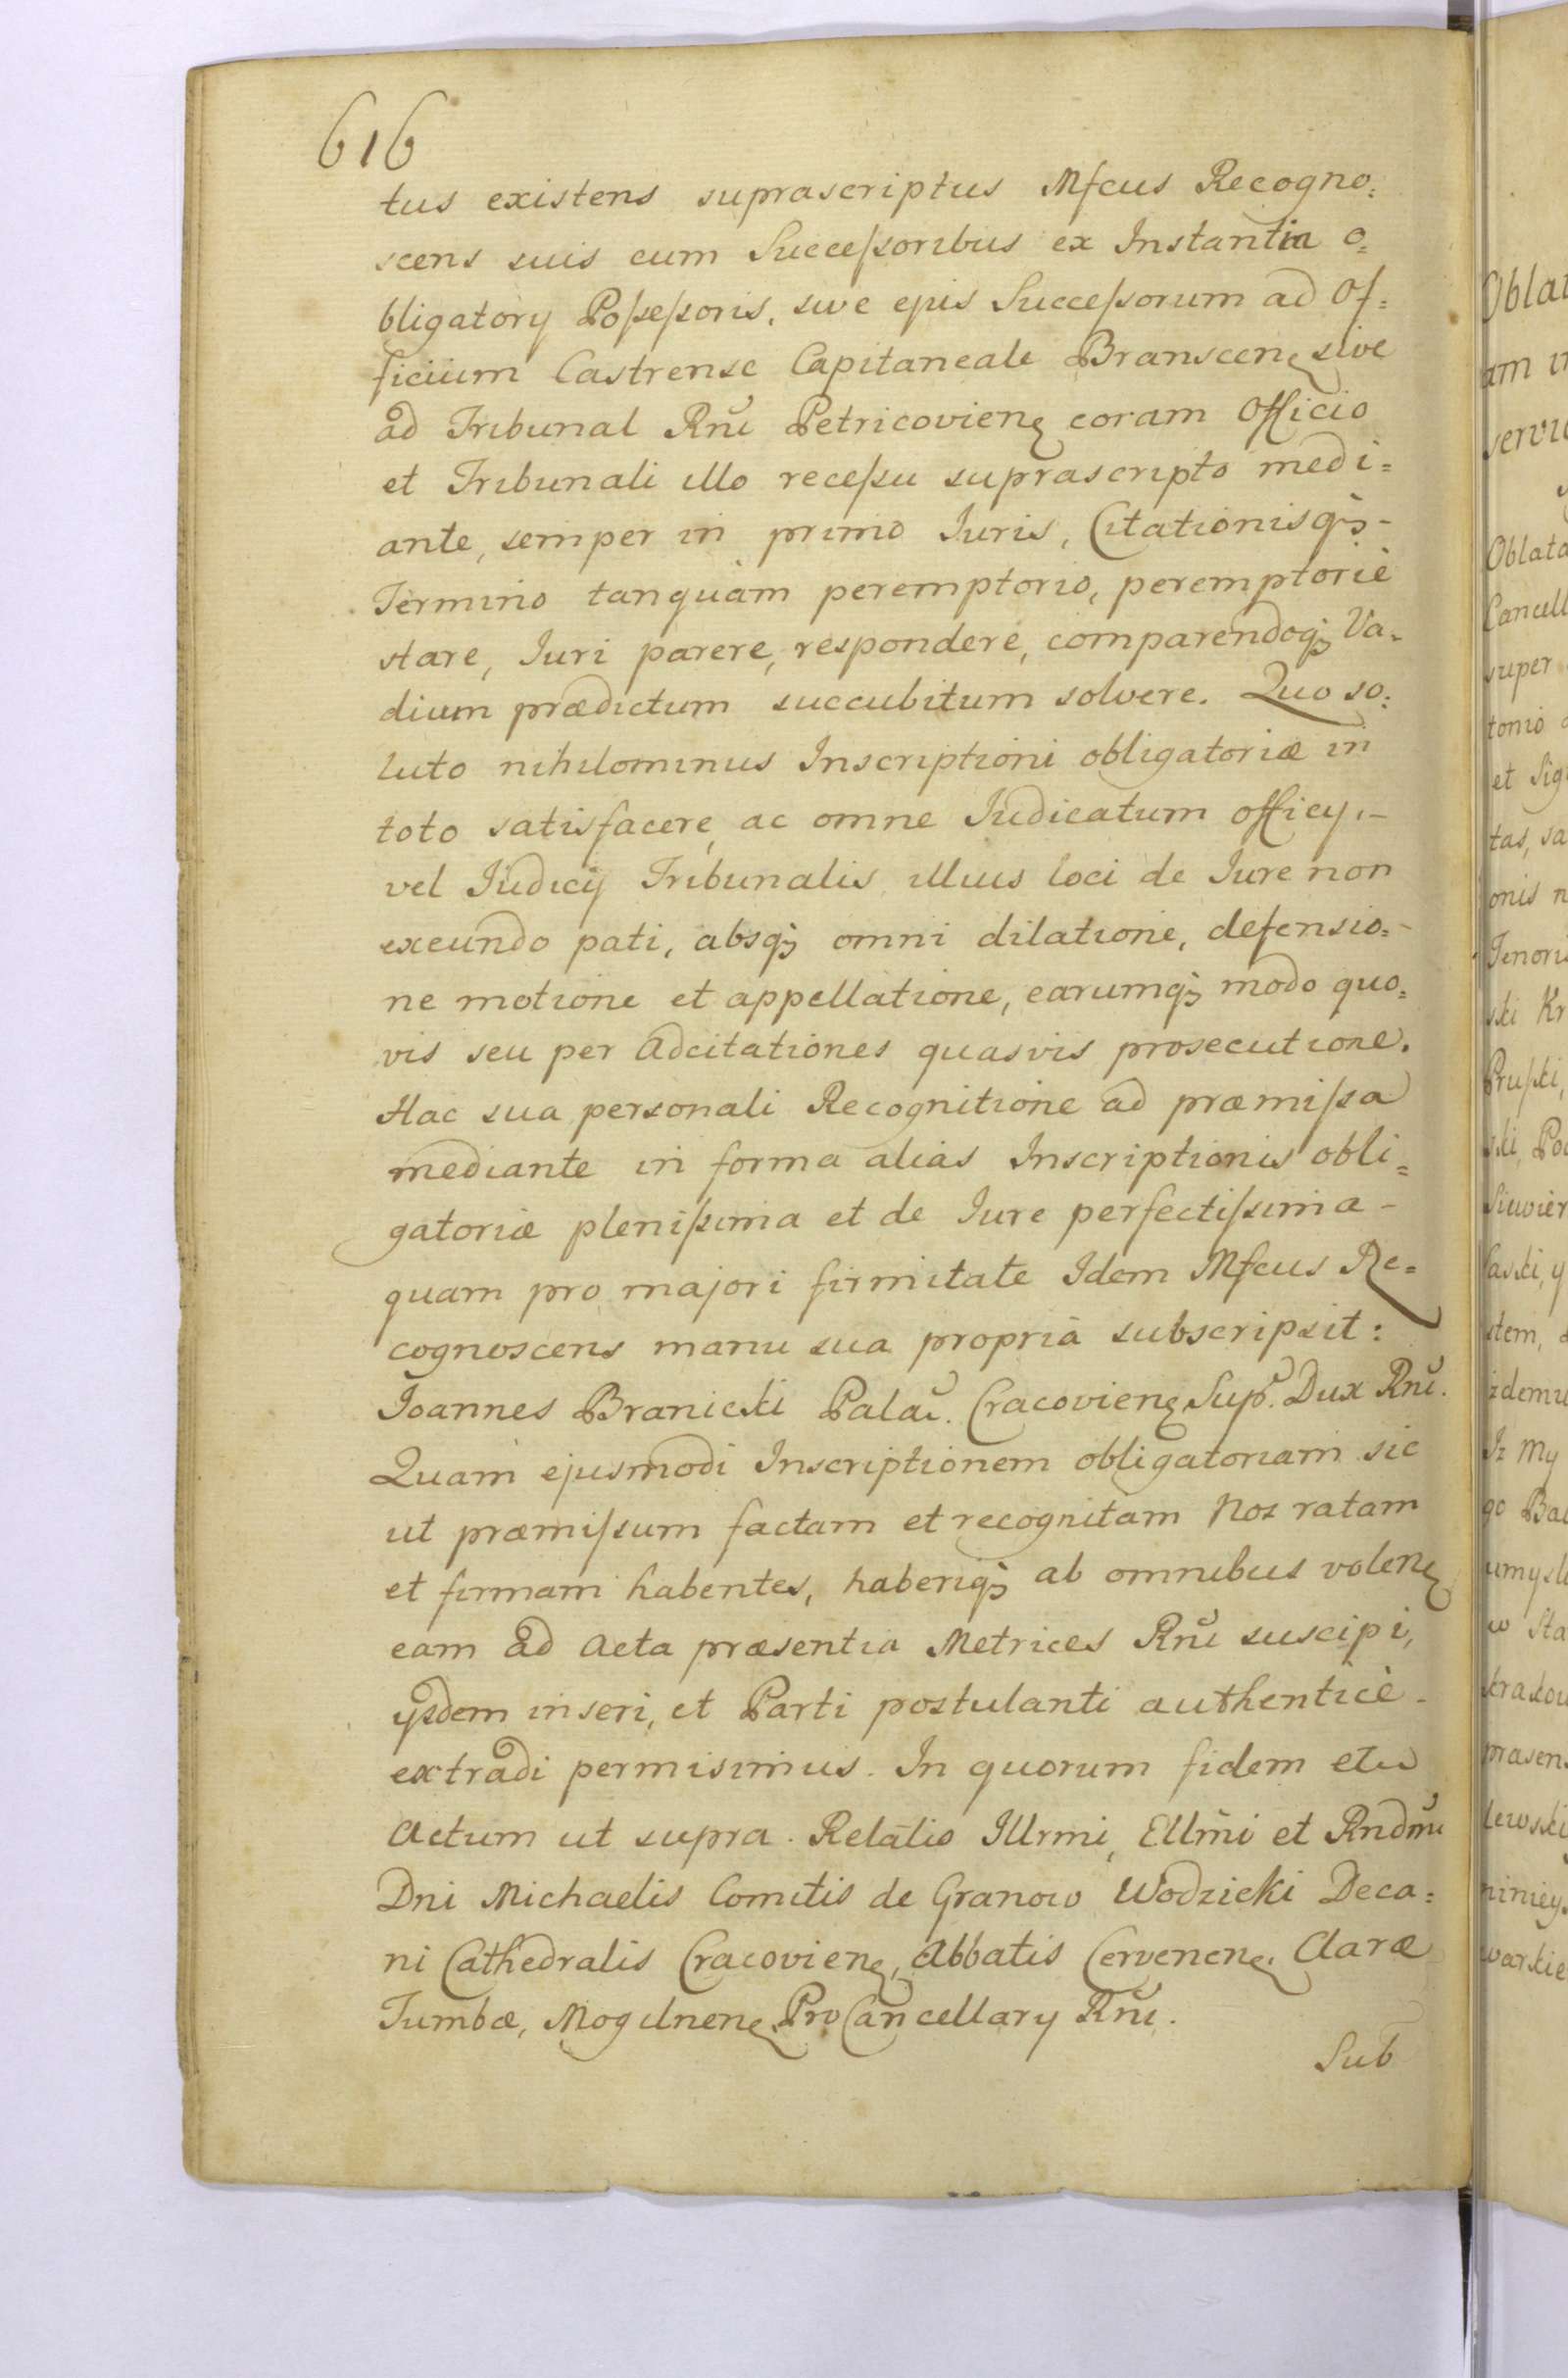 616
tus existens suprascriptus Mfcus Recogno:
scens suis cum Succeſsoribus ex Instantia o=
bligatory Poſseſsoris, sive ejus Succeſsorum ad Of=
ficium Castrense Capitaneale Branscen sive
ad Tribunal Rnĭ Petricovien coram Officio
et Tribunali illo receſsu suprascripto medi=
ante, semper in primo Iuris, Citationisq̃ -
Termino tanquàm peremptorio, peremptoriè
stare, Iuri parere, respondere, comparendoq̃ Va=
dium prædictum succubitum solvere. Quo so:
luto nihilominus Inscriptioni obligatoriæ in
toto satisfacere, ac omne Iudicatum officy, -
vel Iudicÿ Tribunalis illius loci de Iure non
exeundo pati, absq̃ omni dilatione, defensio=
ne motione et appellatione, earumq̃ modo quo=
vis seu per adcitationes quasvis prosecutione.
Hac sua personali Recognitione ad præmiſsa
mediante in forma alias Inscriptionis obli=
gatoriæ pleniſsima et de Iure perfectiſsima -
quam pro majori firmitate Idem Mfcus Re=
cognoscens manu sua propria subscripsit:
Ioannes Branicki Palaŭ. Cracovien Sup. Dux Rnĭ.
Quam ejusmodi Inscriptionem obligatoriam sic
ut præmiſsum factam et recognitam Nos ratam
et firmam habentes, haberiq̃ ab omnibus volen
eam ad Acta præsentia Metrices Rnĭ suscipi,
ijsdem inseri, et Parti postulanti authenticè -
extradi permisimus. In quorum fidem etc
Actum ut supra. Relatio Illrmi, Ellmi et Rndmi
Dni Michaelis Comitis de Granow Wodzicki Deca=
ni Cathedralis Cracovien, Abbatis Cervenen, Claræ
Tumbæ, Mogilnen ProCancellary Rnĭ.
Sub
Oblat
am in
servi
Oblata
Cancell
super
tonio
et Sig
tas, sa
onis n
Tenoris
ski Kr
Pruſki,
ski, Po
aski, y
stem,
idemu
Iz My
go Ba
umysl
w Sta
krakow
præsen
lewski
niniey
warkie